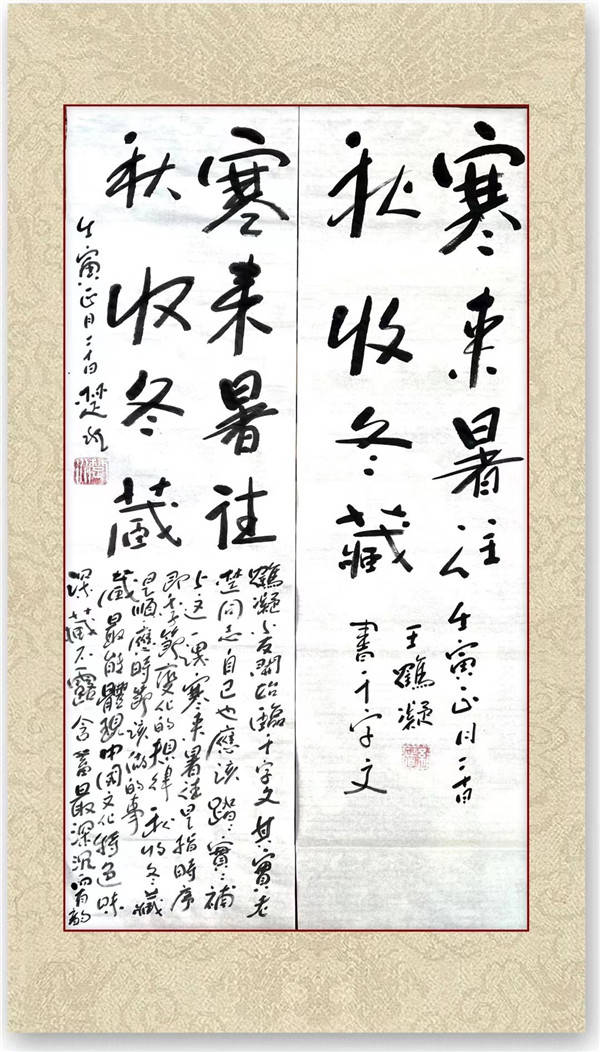 寒来暑往
壬寅正月二十日
秋收冬藏
王鶴凝
書千字文
寒来暑往
秋收冬藏
壬寅正月二十日楚
鶴凝小友開始臨千字文其實老
楚同志自己也應該踏々實々補
上这一课寒来暑往是指時序
即季節變化的規律秋收冬藏
是順應時節该做的事
藏最能體現中国文化特色味
深藏不露含蓄最深沉